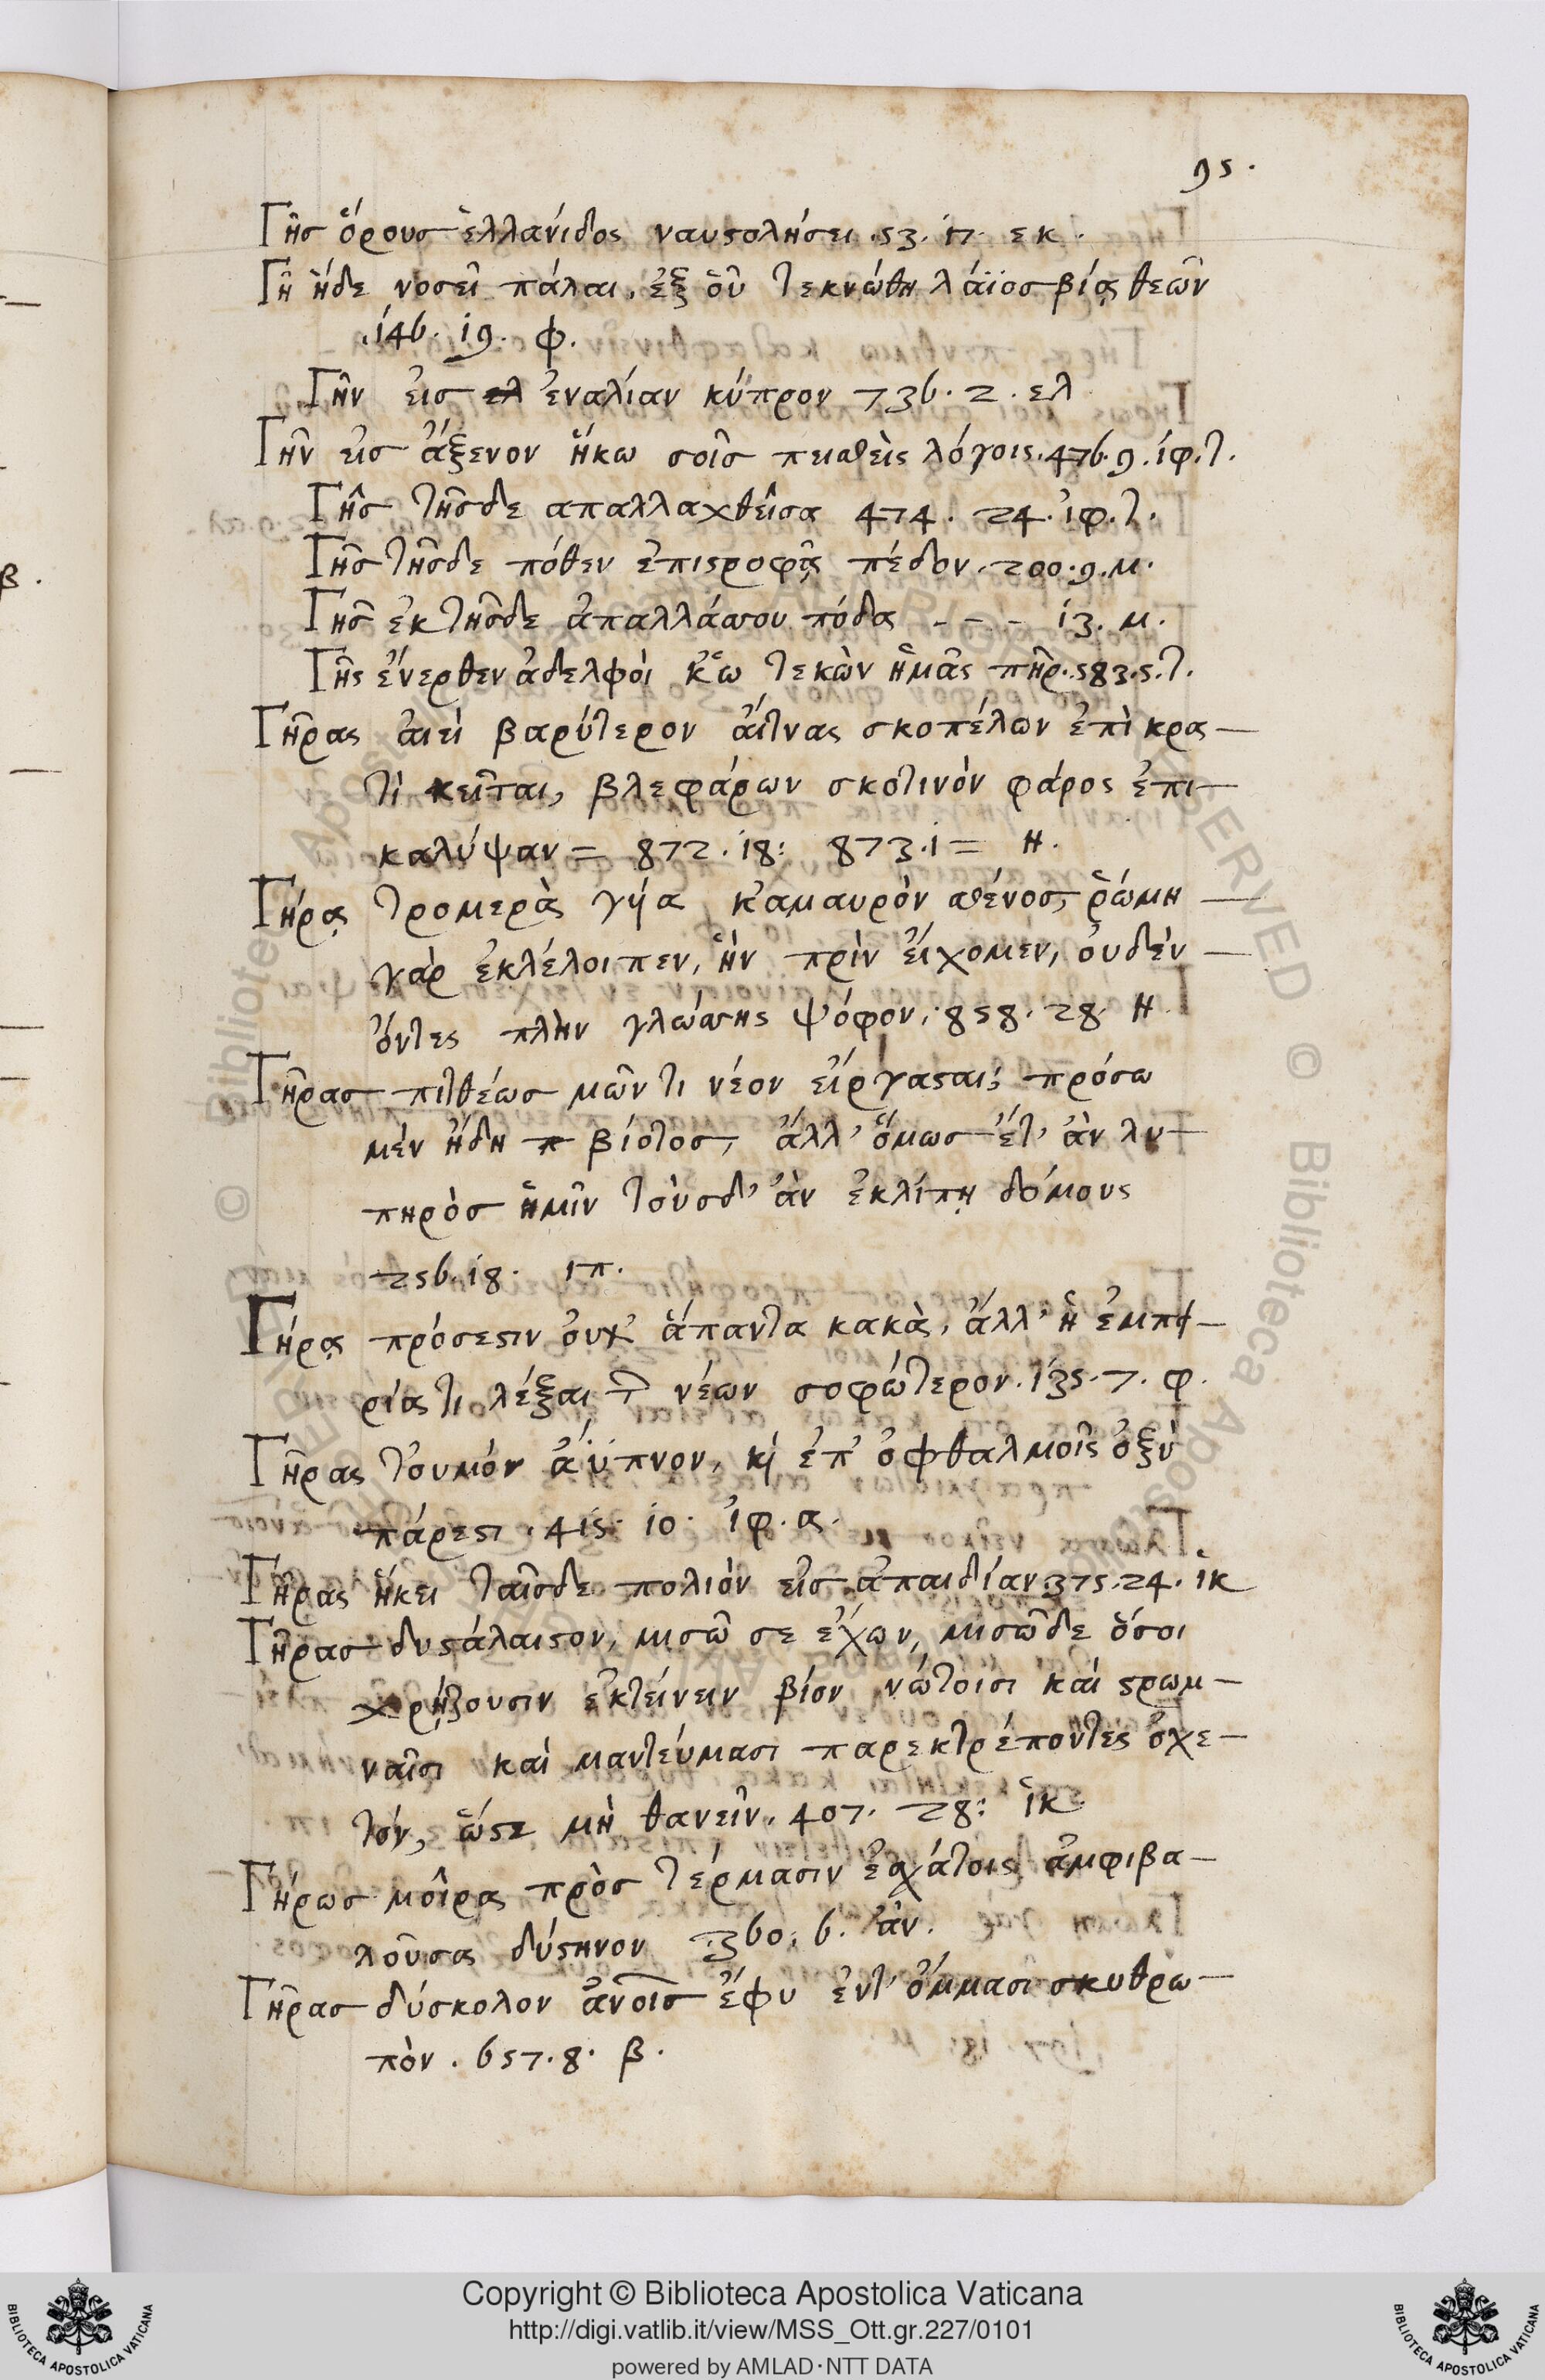 95.
Γῆσ ὅρουσ ἑλλανίδος ναυςολήσει .53. 17. εκ.
Γῆ ἥδε νοσεῖ πάλαι, ἐξ οὗ τεκνώθη λάϊοσ βίᾳ θεῶν
.146. 19. φ.
Γῆν εἰσ ἐναλίαν κύπρον 736. 2. ελ
Γῆν εἰσ ἄξενον ἥκω σοῖσ πεισθεὶς λόγοις. 476. 9. ἰφ. τ.
Γῆσ τῆσδε απαλλαχθεῖσα 474. 24. ἰφ. τ.
Γῆσ τῆσδε πόθεν ἐπιςροφᾷς πέδον. 200. 9. μ.
Γῆσ ἐκ τῆσδε ἀπαλλάσσου πόδα - - - 13. μ.
Γῆς ἔνερθεν ἀδελφὸι κἄω τεκὼν ἡμᾶς πῆρ. 583. 5. τ.
Γῆρας ἀιεὶ βαρύτερον ἄιτνας σκοπέλων ἐπὶ κρα—
τὶ κεῖται, βλεφάρων σκοτινὸν φάρος ἐπι—
καλύψαν = 872. 18: 873. 1 = Η.
Γήρᾳ τρομερὰ γῆα κ'αμαυρὸν σθένοσ, ῥώμη —
γὰρ ἐκλέλοιπεν, ἣν πρὶν ἔιχομεν, ὀυδὲν —
ὄντες πλὴν γλώσσης ψόφον. 858. 28. Η
Γῆρασ πιτθέωσ μῶν τι νέον εἴργαςαι; πρόσω
μὲν ἤδη βίοτοσ, ἄλλ' ὅμωσ ἔτ' ἀν λυ—
πηρὸσ ἡμῖν τοὺσδ' ἀν ἐκλίπῃ δόμους
256. 18. ιπ.
Γήρᾳ πρόσεςιν ὀυχ' ἅπαντα κακὰ, ἄλλ' ἡ ἐμπει—
ρίας τι λέξαι τ νέων σοφώτερον. 135. 7. φ.
Γῆρας τὀυμόν ἄϋπνον, κὶ ἐπ' ὀφθαλμοῖς ὀξὺ
πάρεςι. 415. 10. ἰφ. α.
Γῆρας ἥκει ταῖσδε πολιὸν εἰσ ἀπαιδίαν 375. 24. ἱκ
Γῆρασ δυςάλαιςον, μισῶ σε ἔχων, μισῶ δε ὅσοι
χρῄζουσιν ἐκτείνειν βίον νώτοισι καὶ ςρωμ—
ναῖσι καὶ μαντεύμασι παρεκτρέποντες ὀχε—
τόν, ὥςε μὴ θανεῖν. 407. 28: ἱκ
Γήρωσ μοῖρας πρὸσ τέρμασιν ἐσχάτοις ἀμφιβα—
λοῦσα δύςηνον 360. 6. ἀν.
Γῆρασ δύσκολον ἀνοισ ἔφυ ἐντ' ὄμμασι σκυθρω—
πὸν. 657. 8. β.
β.
© Biblioteca Apostolica
Copyright © Biblioteca Apostolica Vaticana
http://digi.vatlib.it/view/MSS_Ott.gr.227/0101
powered by AMLAD·NTT DATA
BIBLIOTECA APOSTOLICA VATICANA
BIBLIOTECA APOSTOLICA VATICANA